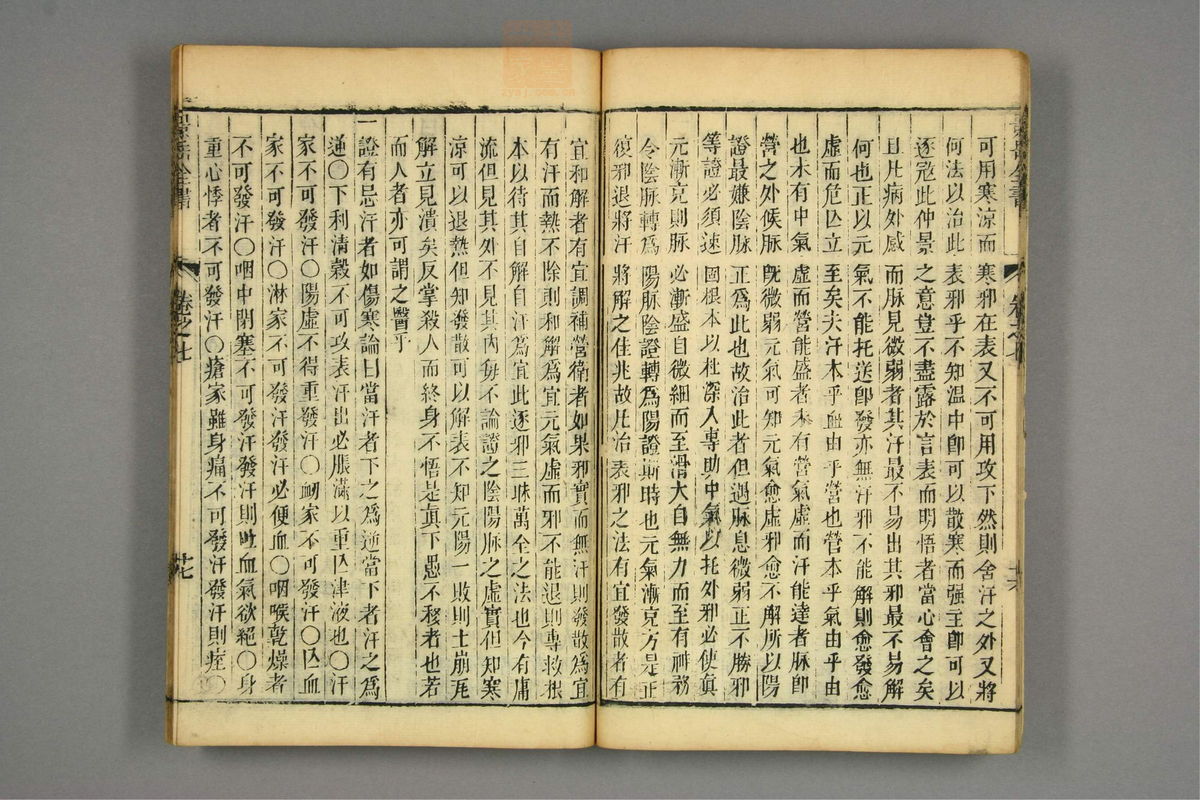 可用寒涼而寒邪在表又不可用攻下然則舍汗之外又將
何法以治此表邪乎不知温中卽可以散寒而强主卽可以
逐宼此仲景之意豈不盡露於言表而明悟者當心會之矣
且凡病外感而脉見微弱者其汗最不易出其邪最不易解
何也正以元氣不能托送卽發亦無汗邪不能解則愈發愈
虛而危亾立至矣夫汗本乎血由乎營也營本乎氣由乎中
也未有中氣虛而營能盛者未有營氣虛而汗能達者脉卽
營之外候脉旣微弱元氣可知元氣愈虛邪愈不解所以陽
證最嫌陰脉正爲此也故治此者但遇脉息微弱正不勝邪
等證必須速固根本以杜深入專助中氣以托外邪必使眞
元漸充則脉必漸盛自微細而至滑大自無力而至有神務
令陰脉轉爲陽脉陰證轉爲陽證斯時也元氣漸充方是正
復邪退將汗將解之佳兆故凡治表邪之法有宜發散者有
宜和解者有宜調補營衛者如果邪實而無汗則發散爲宜
有汗而熱不除則和解爲宜元氣虛而邪不能退則專救根
本以待其自解自汗爲宜此逐邪三昧萬全之法也今有庸
流但見其外不見其内每不論證之陰陽脉之虛實但知寒
涼可以退熱但知發散可以解表不知元陽一敗則土崩瓦
解立見潰矣反掌殺人而終身不悟是眞下愚不移者也若
而人者亦可謂之醫乎
一證有忌汗者如傷寒論曰當汗者下之爲逆當下者汗之爲
逆〇下利清穀不可攻表汗出必脹滿以重亾津液也〇汗
家不可發汗〇陽虛不得重發汗〇衂家不可發汗〇亾血
家不可發汗〇淋家不可發汗發汗必便血〇咽喉乾燥者
不可發汗〇咽中閉塞不可發汗發汗則吐血氣欲絕〇身
重心悸者不可發汗〇瘡家雖身痛不可發汗發汗則痓〇
卷之七
卷之七